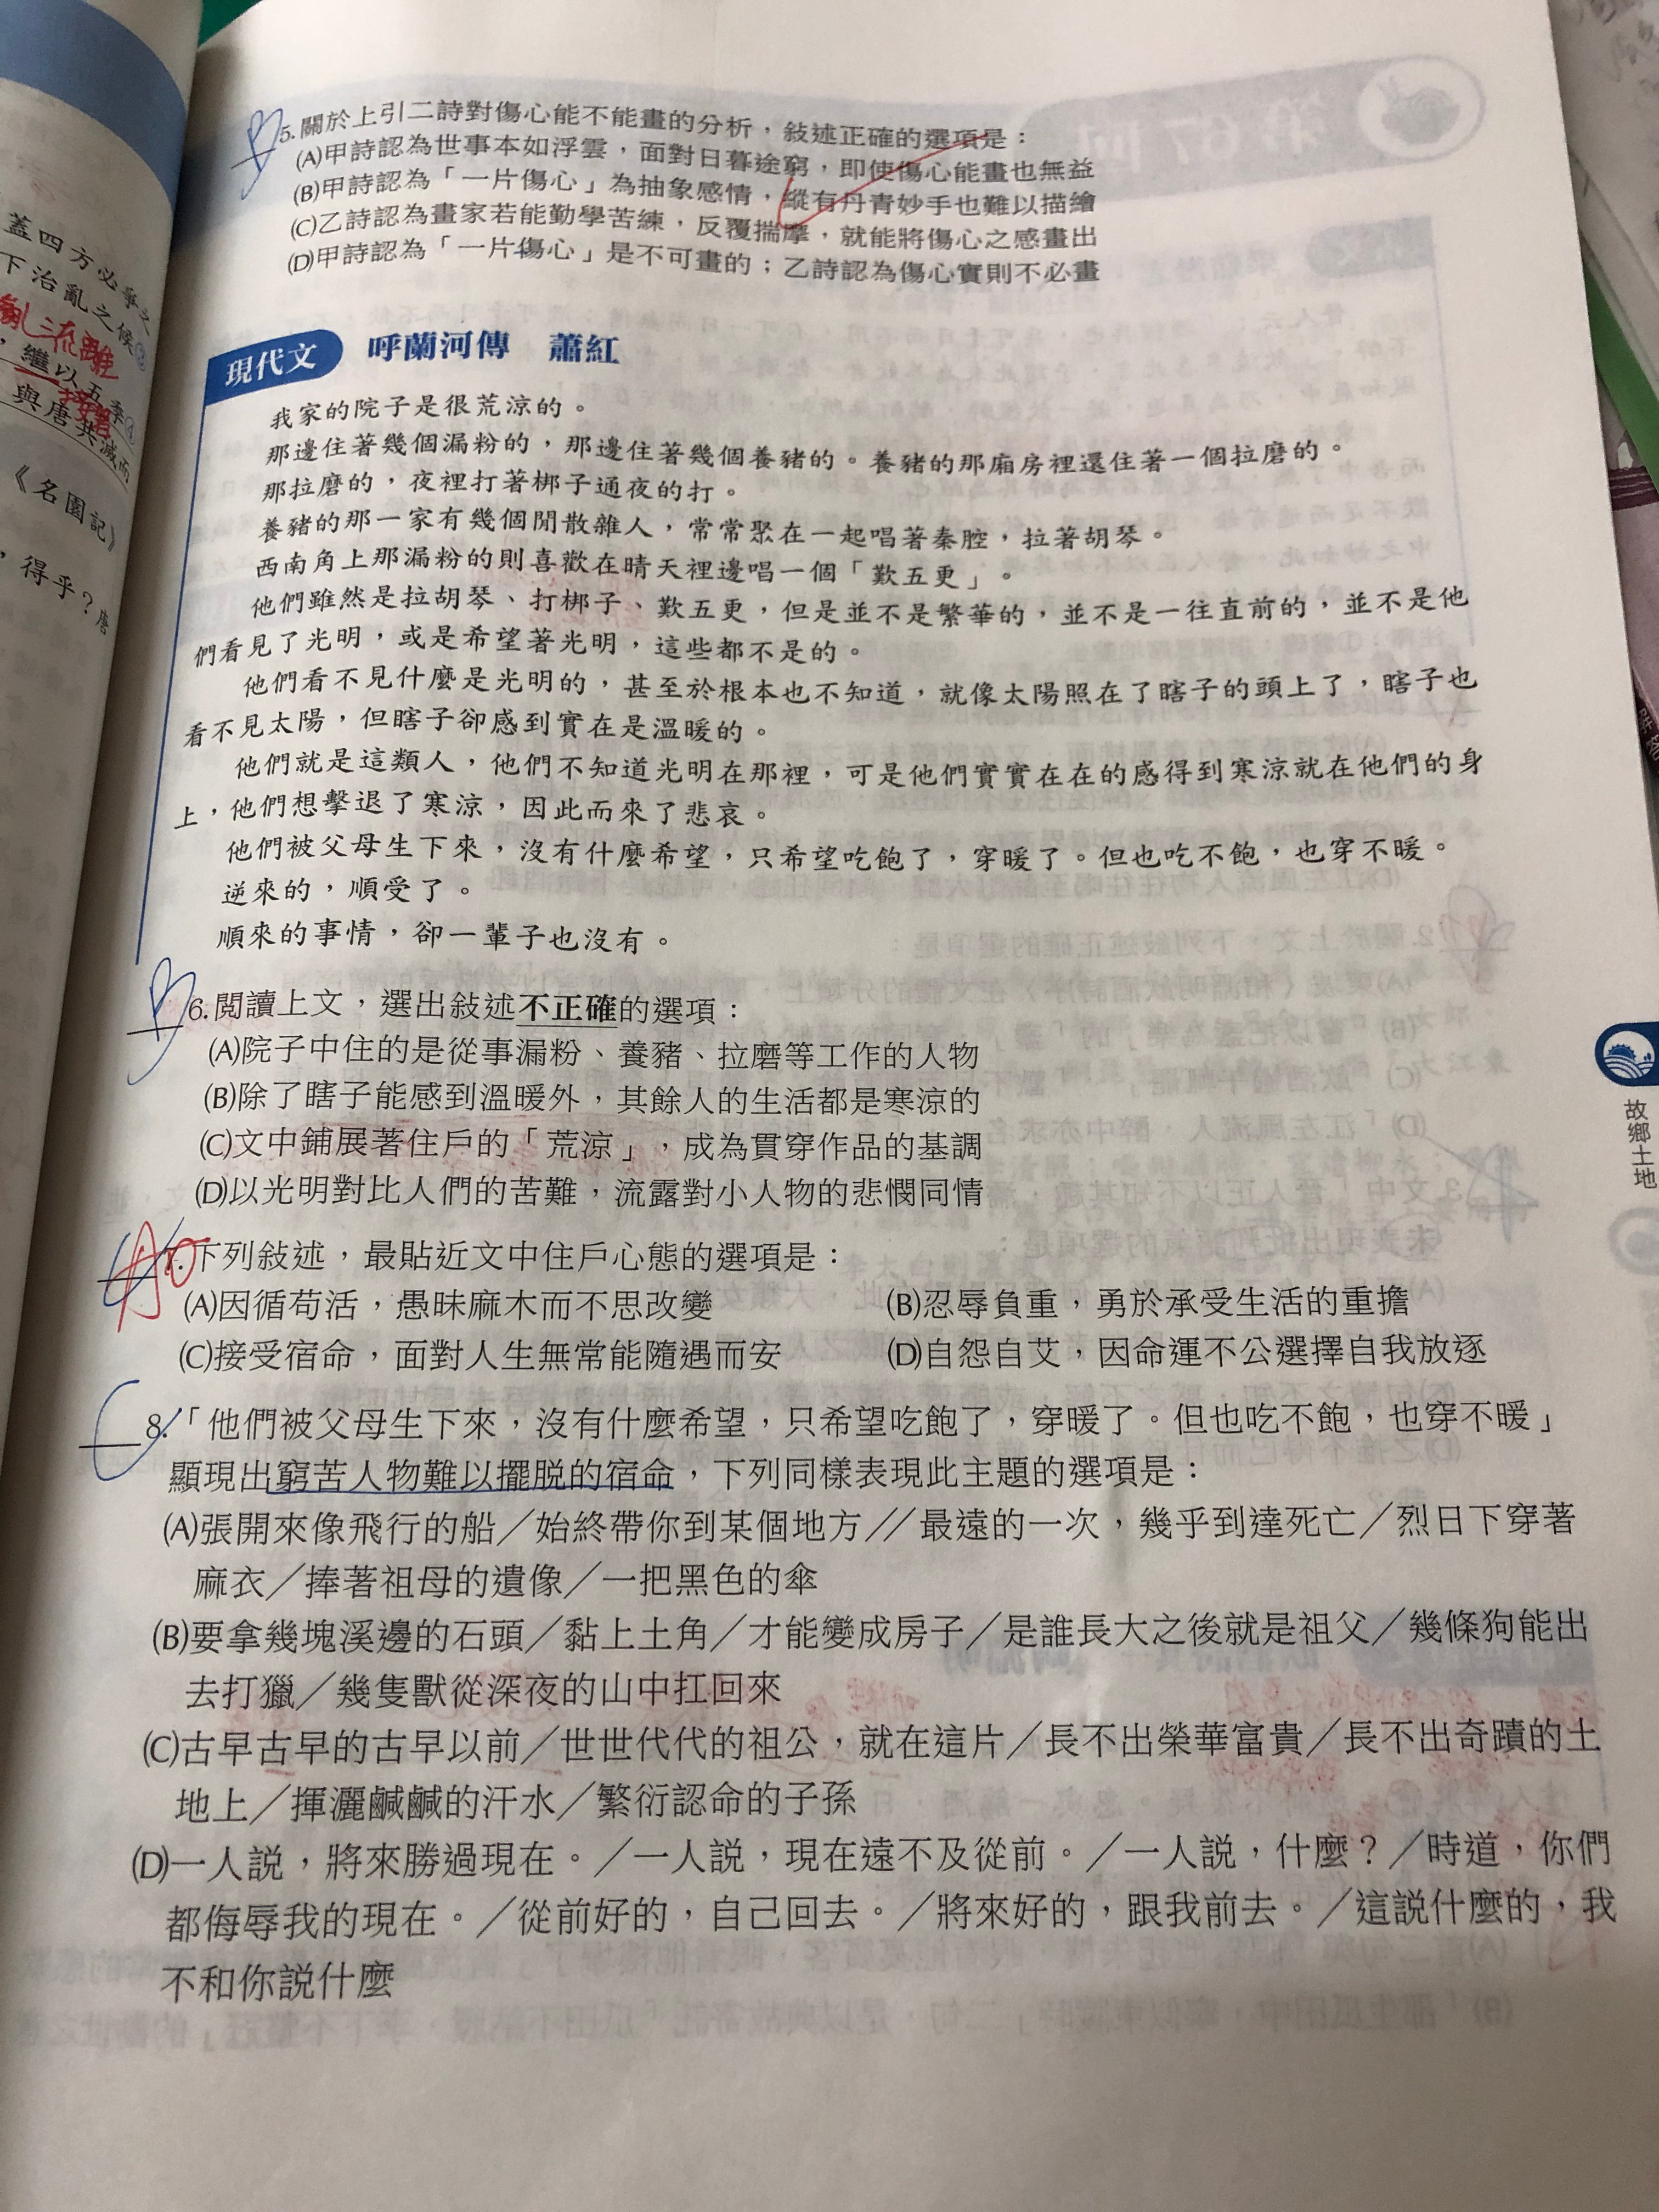 蓋四方必爭之
下治亂之候
亂流離
,繼以五季
接著
與唐共滅而
《名園記》
,得乎?唐
B
5.關於上引二詩對傷心能不能畫的分析,敘述正確的選項是:
(A)甲詩認為世事本如浮雲,面對日暮途窮,即使傷心能畫也無益
(B)甲詩認為「一片傷心」為抽象感情,縱有丹青妙手也難以描繪
(C)乙詩認為畫家若能勤學苦練,反覆揣摩,就能將傷心之感畫出
(D)甲詩認為「一片傷心」是不可畫的;乙詩認為傷心實則不必畫
現代文 呼蘭河傳 蕭紅
我家的院子是很荒涼的。
那邊住著幾個漏粉的,那邊住著幾個養豬的。養豬的那廂房裡還住著一個拉磨的。
那拉磨的,夜裡打著梆子通夜的打。
養豬的那一家有幾個閒散雜人,常常聚在一起唱著秦腔,拉著胡琴。
西南角上那漏粉的則喜歡在晴天裡邊唱一個「歎五更」。
他們雖然是拉胡琴、打梆子、歎五更,但是並不是繁華的,並不是一往直前的,並不是他
們看見了光明,或是希望著光明,這些都不是的。
他們看不見什麼是光明的,甚至於根本也不知道,就像太陽照在了瞎子的頭上了,瞎子也
看不見太陽,但瞎子卻感到實在是溫暖的。
他們就是這類人,他們不知道光明在那裡,可是他們實實在在的感得到寒涼就在他們的身
上,他們想擊退了寒涼,因此而來了悲哀。
他們被父母生下來,沒有什麼希望,只希望吃飽了,穿暖了。但也吃不飽,也穿不暖。
逆來的,順受了。
順來的事情,卻一輩子也沒有。
B
6.閱讀上文,選出敘述不正確的選項:
(A)院子中住的是從事漏粉、養豬、拉磨等工作的人物
(B)除了瞎子能感到溫暖外,其餘人的生活都是寒涼的
(C)文中鋪展著住戶的「荒涼」,成為貫穿作品的基調
(D)以光明對比人們的苦難,流露對小人物的悲憫同情
A
7.下列敘述,最貼近文中住戶心態的選項是:
(A)因循苟活,愚昧麻木而不思改變 (B)忍辱負重,勇於承受生活的重擔
(C)接受宿命,面對人生無常能隨遇而安 (D)自怨自艾,因命運不公選擇自我放逐
C
8.「他們被父母生下來,沒有什麼希望,只希望吃飽了,穿暖了。但也吃不飽,也穿不暖」
顯現出窮苦人物難以擺脫的宿命,下列同樣表現此主題的選項是:
(A)張開來像飛行的船/始終帶你到某個地方//最遠的一次,幾乎到達死亡/烈日下穿著
麻衣/捧著祖母的遺像/一把黑色的傘
(B)要拿幾塊溪邊的石頭/黏上土角/才能變成房子/是誰長大之後就是祖父/幾條狗能出
去打獵/幾隻獸從深夜的山中扛回來
(C)古早古早的古早以前/世世代代的祖公,就在這片/長不出榮華富貴/長不出奇蹟的土
地上/揮灑鹹鹹的汗水/繁衍認命的子孫
(D)一人說,將來勝過現在。/一人說,現在遠不及從前。/一人說,什麼?/時道,你們
都侮辱我的現在。/從前好的,自己回去。/將來好的,跟我前去。/這說什麼的,我
不和你說什麼
故鄉土地